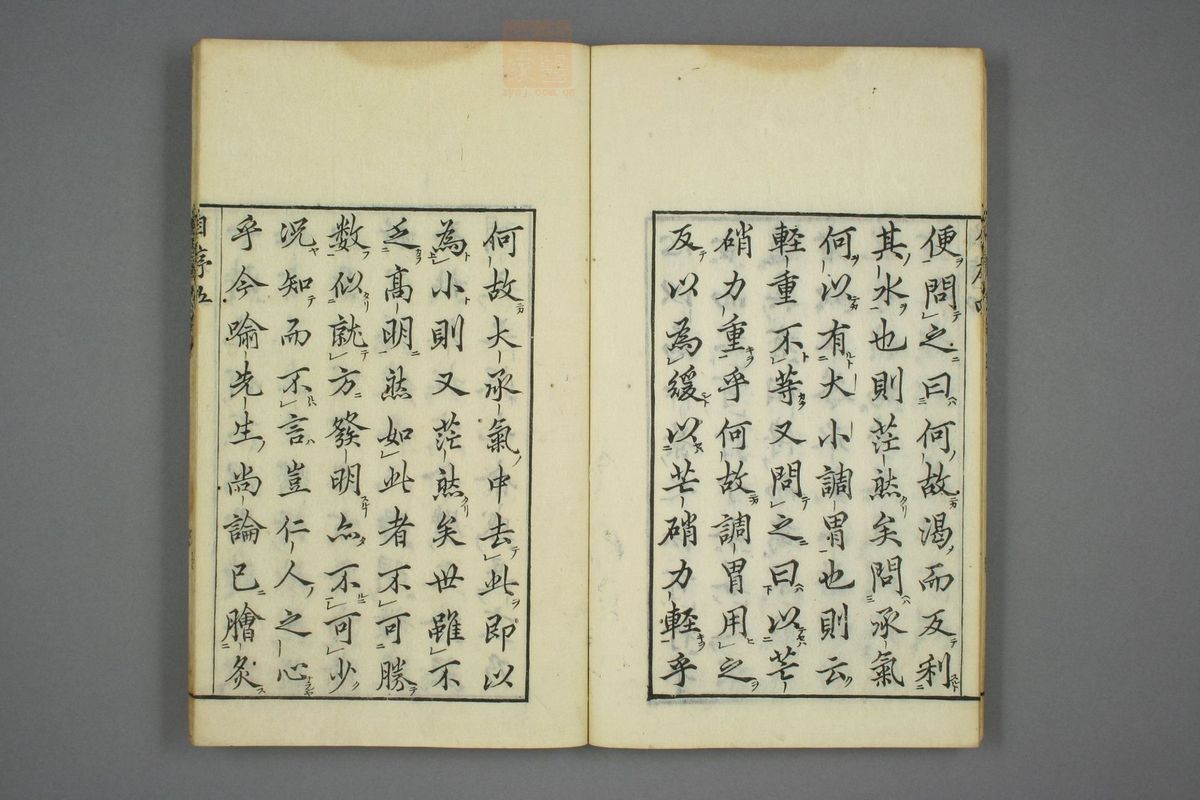 便問之曰何故渴而反利
其水也則茫然矣問承氣
何以有大小調胃也則云
輕重不等又問之曰以芒
硝力重乎何故調胃用之
反以為緩以芒硝力輕乎
何故大承氣中去此即以
為小則又茫然矣世雖不
乏高明然如此者不可勝
数似就方發明亦不可少
況知而不言豈仁人之心
乎今喻先生尚論已膾炙
自序